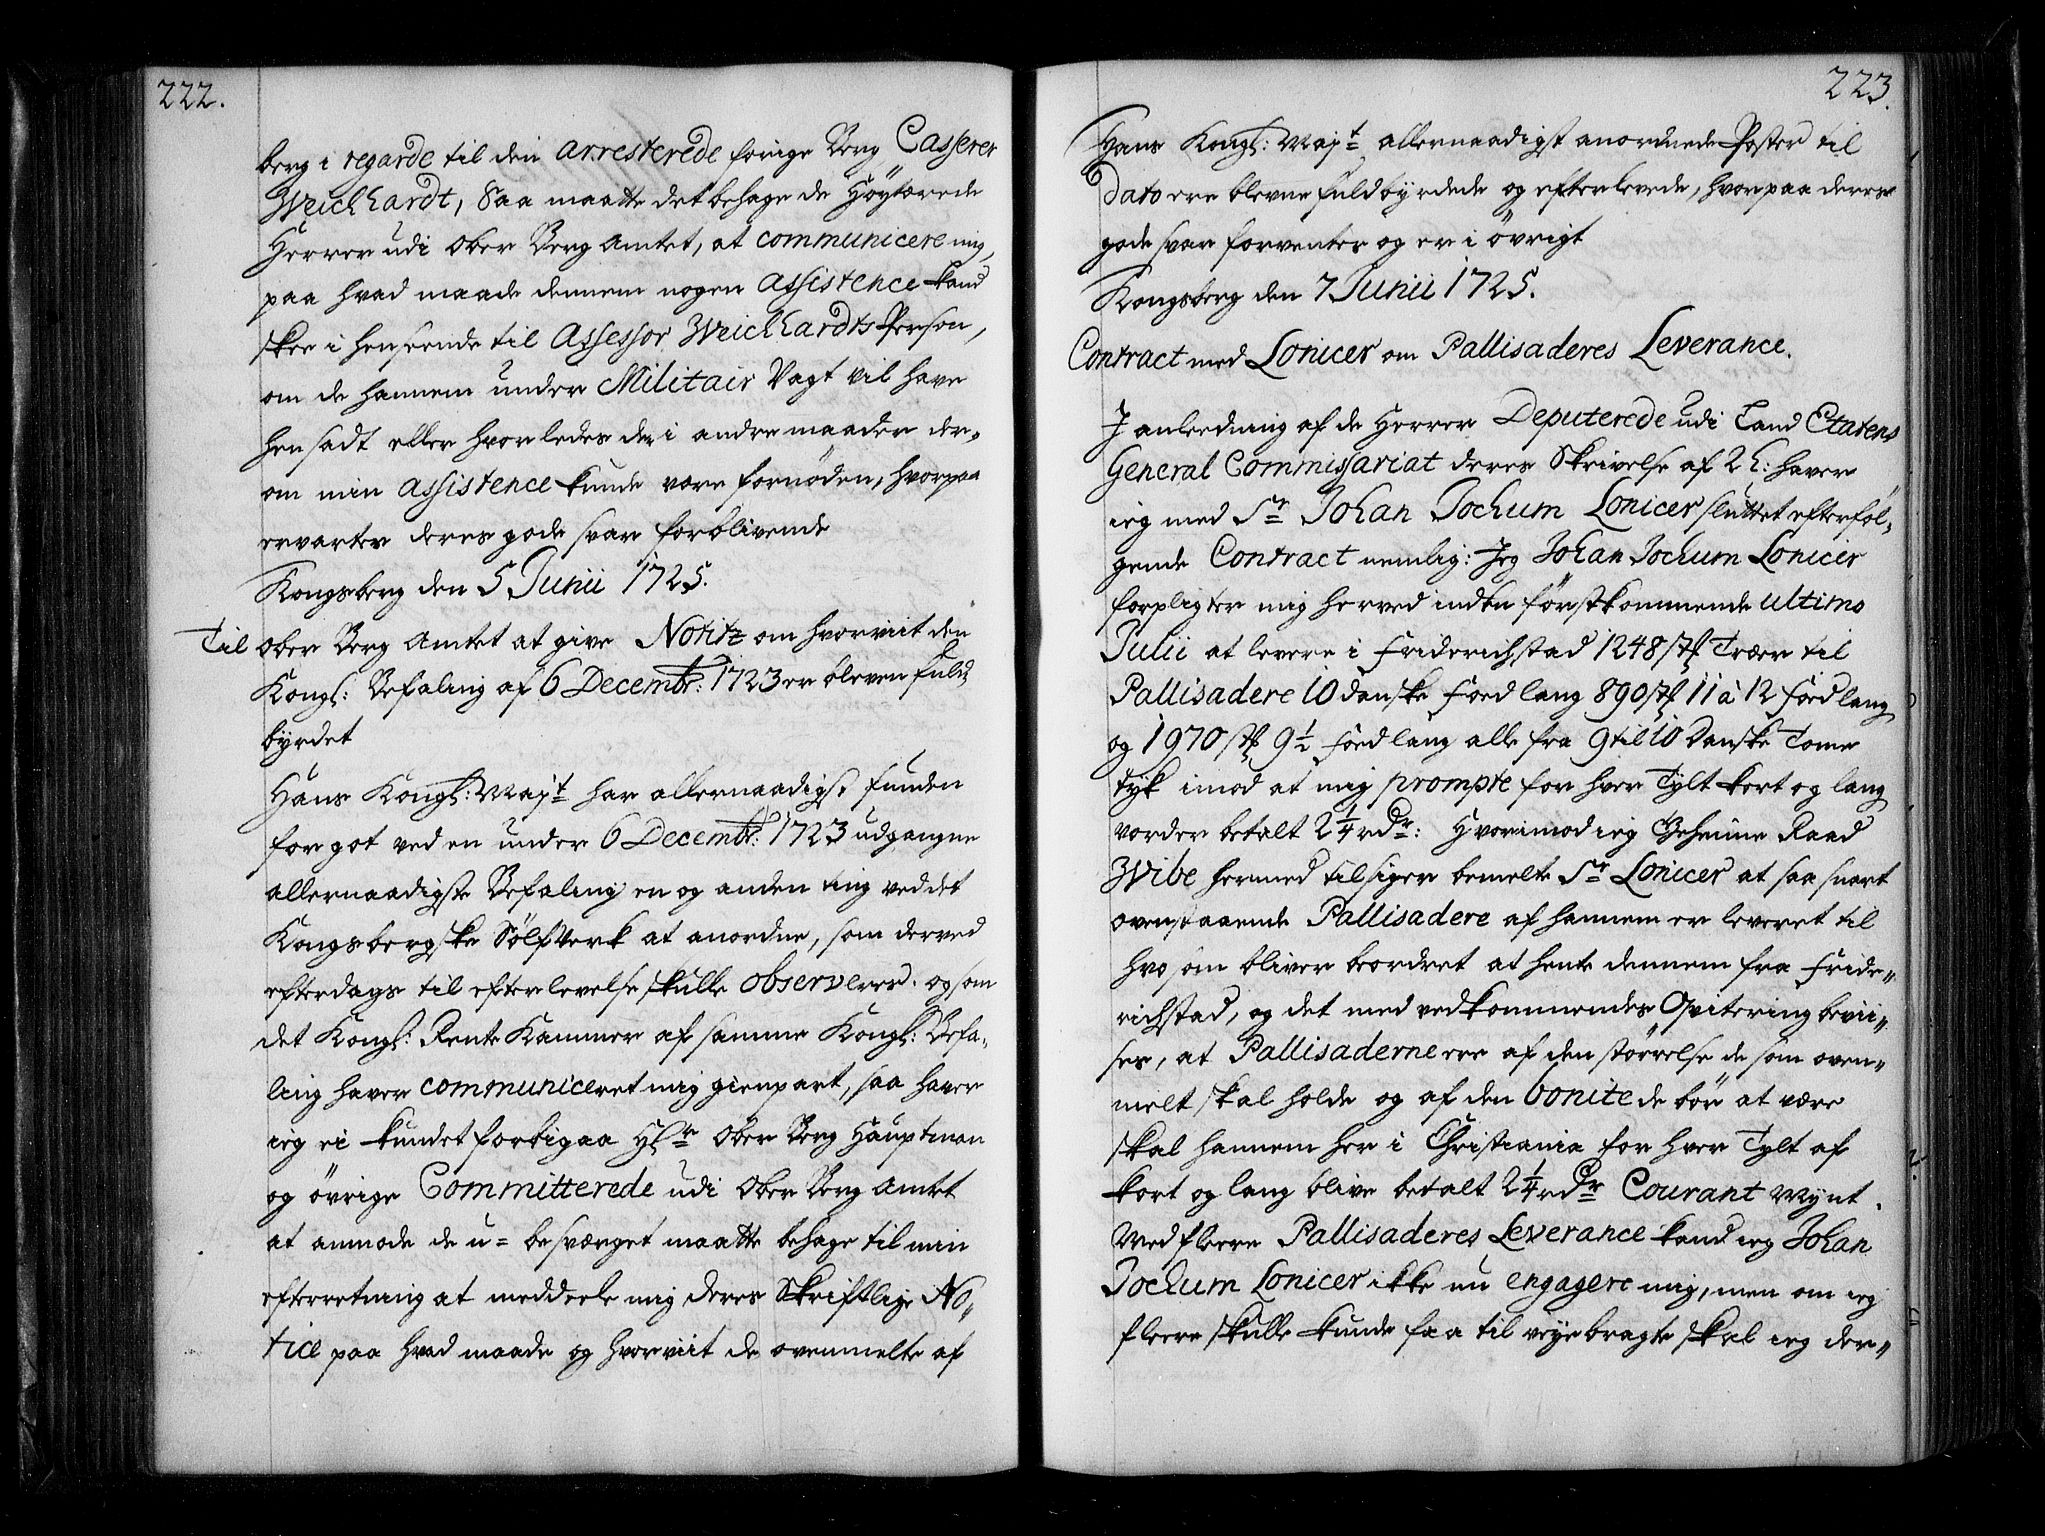 222.
berg i regarde til den arresterede forige Berg Casserer
Weichhardt, Saa maatte det behage de Høytærede
Herrer udi Ober Berg Amtet, at communicere mig,
paa hvad maade dennem nogen assistence kand
skee i henseende til Assessor Weichhardts Person,
om de hannem under Militair Vagt vil have
hensadt eller hvorledes der i andre maader der-
om min assistence kunde være fornøden, hvorpaa
ervarter deres gode svar forblivende
Kongsberg den 5 Junii 1725.
Til Ober Berg Amtet at give Notitz om hvorviit den
Kongl: Befaling af 6 Decembr: 1723 er bleven fuld
byrdet
Hans Kongl: Mayt har allernaadigst funden
for got ved en under 6 Decembr: 1723 udgangne
allernaadigste Befaling en og anden ting ved det
Kongsbergske Sølf Verk at anordne, som derved
efterdags til efterlevelse skulle observeres. og som
det Kongl: Rente Kammer af samme Kongl: Befa-
ling haver communiceret mig gienpart, saa haver
ieg ei kundet forbigaa Hr Ober Berg Hauptman
og øvrige Committerede udi Ober Berg Amtet
at anmode de u-besværget maatte behage til min
efterretning at meddeele mig deres Skriftlige No-
tice paa hvad maade og hvorviit de ovenmelte af
223.
Hans Kongl: Mayt allernaadigst anordnede Poster til
Dato ere blevne fuldbyrdede og efterlevede, hvorpaa deres
gode svar forventer og er i øvrigt
Kongsberg den 7 Junii 1725.
Contract med Lonicer om Pallisaderes Leverance.
J anledning af de Herrer Deputerede udi Land Etatens
General Commissariat deres Skrivelse af 2 h: haver
ieg med Sr Johan Jochum Lonicer sluttet efterføl-
gende Contract nemlig: Jeg Johan Jochum Lonicer
forpligter mig herved inden førstkommende ultimo
Julii at levere i Friderichstad 1248 stk Træer til
Pallisadere 10 danske Foed lang 890 stk 11 à 12 Foed lang
og 1970 stk 9½ Foed lang alle fra 9 til 10 Danske Tome
tyk imod at mig prompte for hver Tylt kort og lang
vorder betalt 2¼ rdr: Hvorimod ieg Geheime Raad
Wibe hermed tilsiger bemelte Sr Lonicer at saa snart
ovenstaaende Pallisadere af hannem er leveret til
hvo som bliver beordret at hente dennem fra Fride-
richstad, og det med vedkommendes Qvitering bevii-
ses, at Pallisaderne ere af den størrelse de som oven-
melt skal holde og af den bonite de bør at være
skal hannem her i Christiania for hver Tylt af
kort og lang blive betalt 2¼ rdr Courant Mynt.
Med fleere Pallisaderes Leverance kand ieg Johan
Jochum Lonicer ikke nu engagere mig, men om ieg
fleere skulle kunde faa til veye bragte skal ieg der-